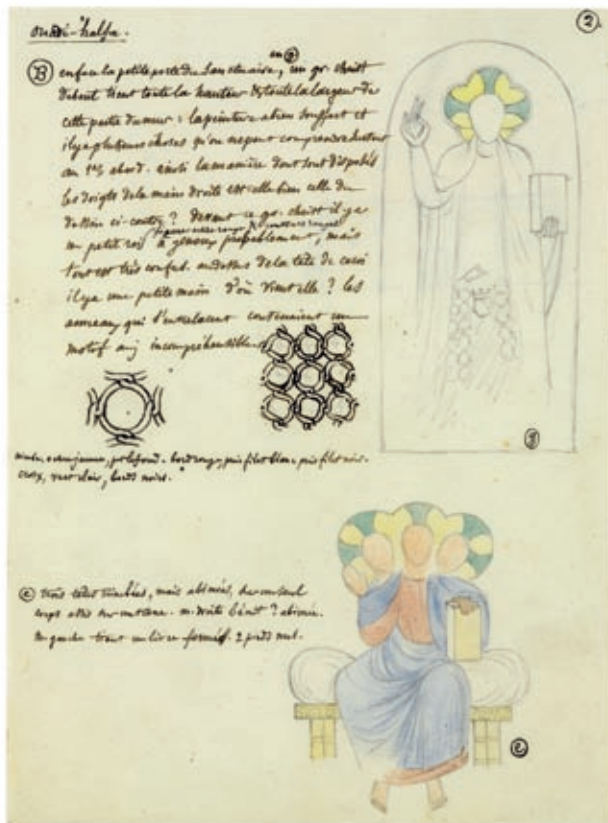 ouadi-halfa.
2
B en face la petite porte du sanctuaire, un gr. christ
debout tient toute la hauteur & toute la largeur de
cette partie du mur : la peinture a bien souffert et
il y a plusieurs choses qu'on ne peut comprendre
au 1er abord. ainsi la manière dont sont disposés
les doigts de la main droite est-elle bien celle du
dessin ci-contre ? devant ce gr. christ il y a
un petit roi à genoux probablement, mais
tout est très confus. au dessus de la tête de ce roi
il y a une petite main d'où vient elle ? les
anneaux qui s'entrelacent contenaient un
motif auj incompréhensible.
nimbe, ocre jaune, fond. bord rouge, puis filet blanc, puis filet noir.
croix, vert clair, bords noirs.
c trois têtes nimbées, mais abîmées, sur un seul
corps assis sur un trône. m. droite bénit ? abîmée.
m. gauche tient un livre fermé. 2 pieds nus.